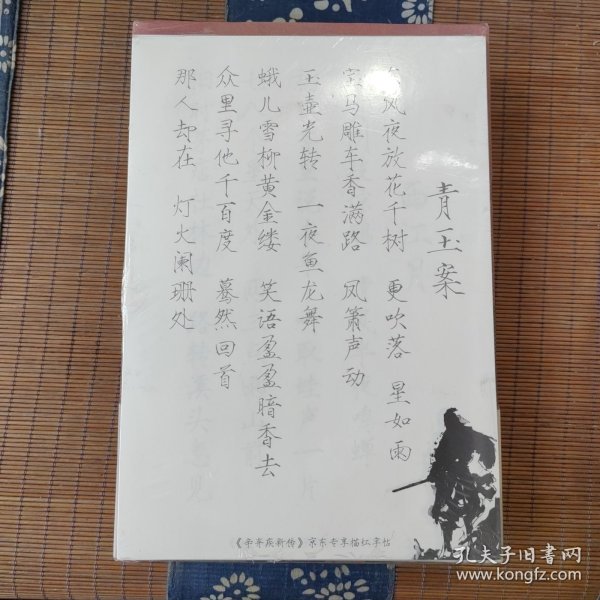 青玉案
东风夜放花千树 更吹落 星如雨
宝马雕车香满路 凤箫声动
玉壶光转 一夜鱼龙舞
蛾儿雪柳黄金缕 笑语盈盈暗香去
众里寻他千百度 蓦然回首
那人却在 灯火阑珊处
《辛弃疾新传》京东专享描红字帖
孔夫子旧书网
www.kongfz.com